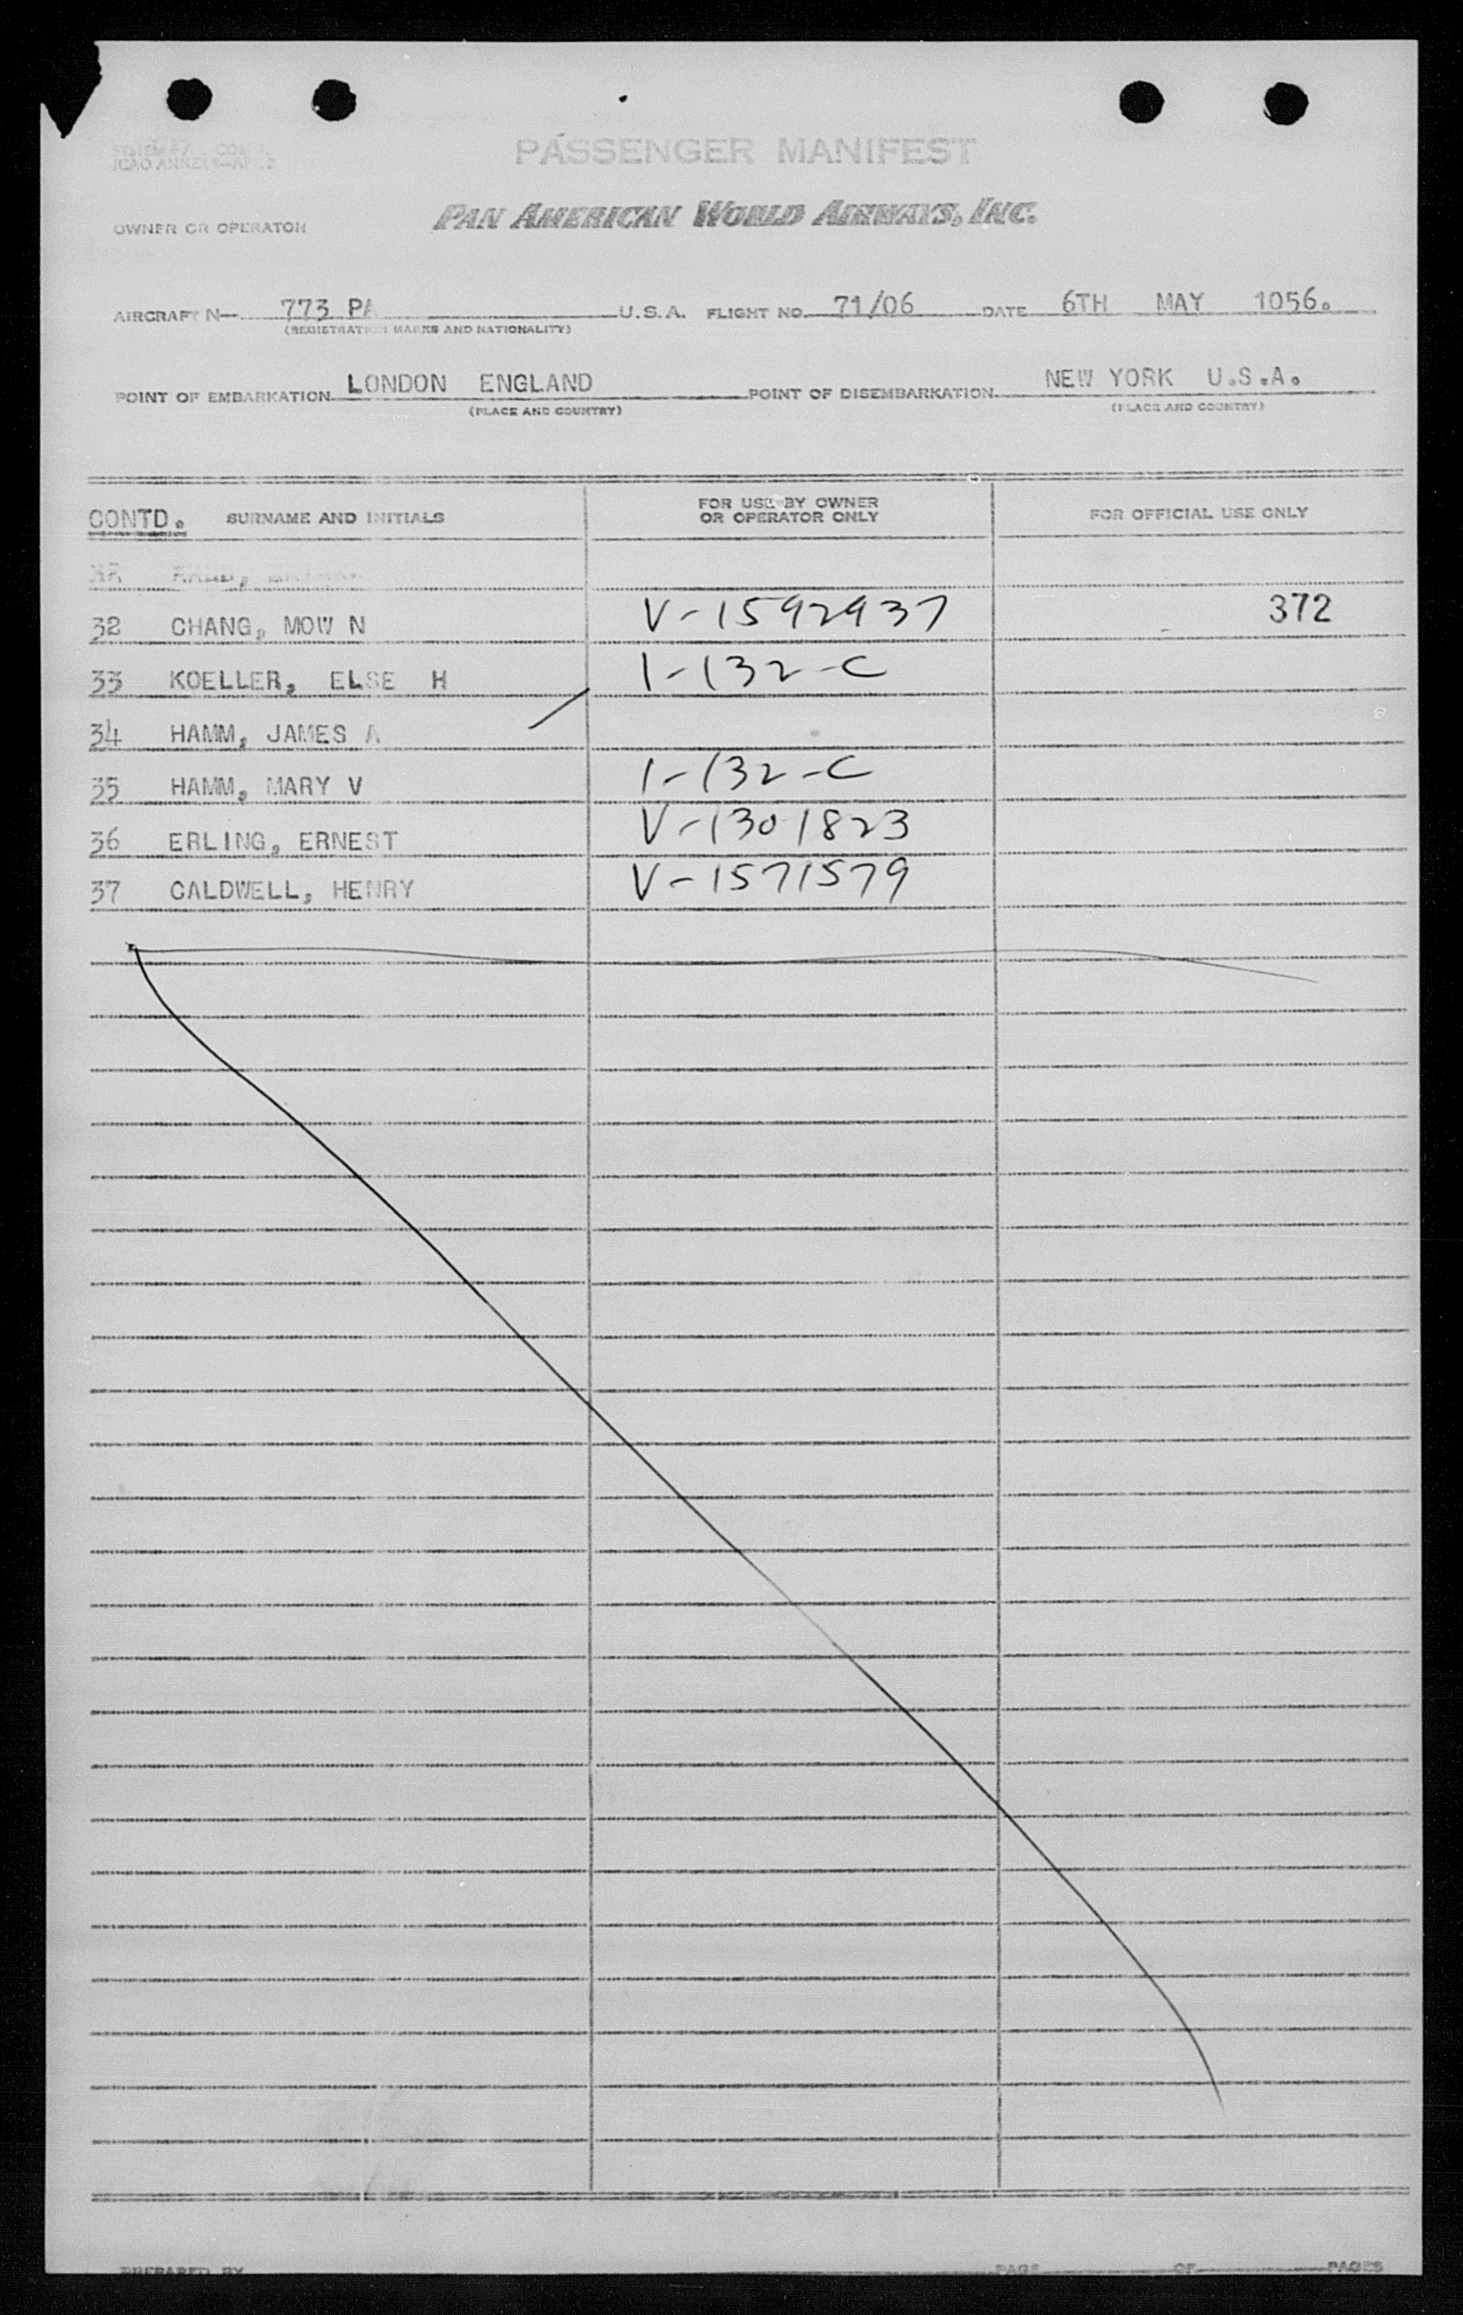 PASSENGER MANIFEST
OWNER OR OPERATOR PAN AMERICAN WORLD AIRWAYS, INC.
AIRCRAFT N- 773 PA U.S.A. FLIGHT NO. 71/06 DATE 6TH MAY 1056.
(REGISTRATION MARKS AND NATIONALITY)
POINT OF EMBARKATION LONDON ENGLAND POINT OF DISEMBARKATION NEW YORK U.S.A.
(PLACE AND COUNTRY) (PLACE AND COUNTRY)
CONTD. SURNAME AND INITIALS FOR USE BY OWNER OR OPERATOR ONLY FOR OFFICIAL USE ONLY
32 CHANG, MOW N V-1592937 372
33 KOELLER, ELSE H 1-132-C
34 HAMM, JAMES A
35 HAMM, MARY V 1-132-C
36 ERLING, ERNEST V-1301823
37 CALDWELL, HENRY V-1571579
PREPARED BY PAGE OF PAGES